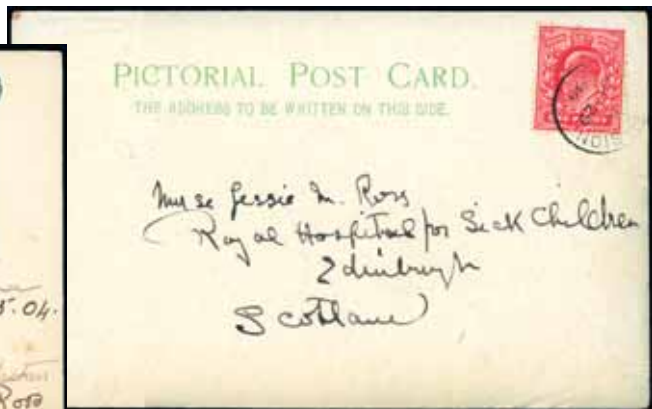 PICTORIAL POST CARD.
THE ADDRESS TO BE WRITTEN ON THIS SIDE.
Nurse Jessie M. Ross
Royal Hospital for Sick Children
Edinburgh
Scotland
5.04.
Ross